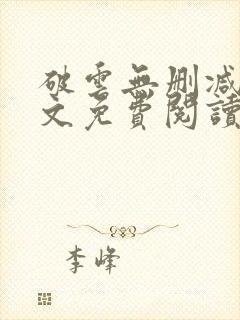 破雲無刪減
文免費閱讀
李峰